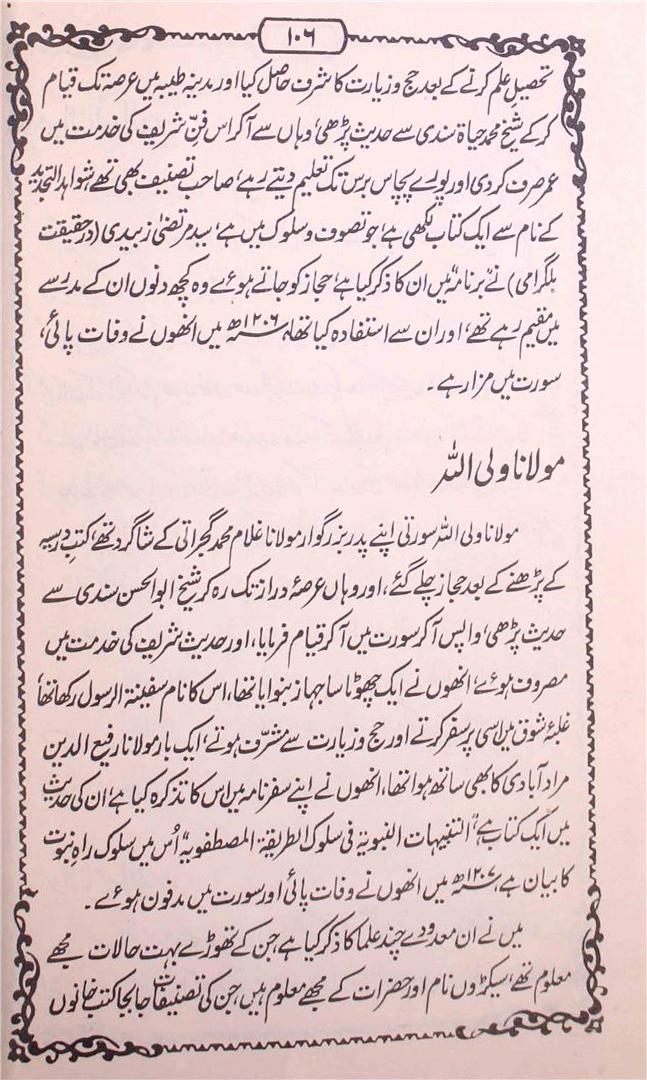 ۱۰۶
تحصیل علم کرنے کے بعد حج و زیارت کا شرف حاصل کیا اور مدینہ طیبہ میں عرصہ تک قیام
کر کے شیخ محمد حیاۃ سندی سے حدیث پڑھی، وہاں سے آ کر اس فن شریف کی خدمت میں
عمر صرف کر دی اور پورے پچاس برس تک تعلیم دیتے رہے، صاحب تصنیف بھی تھے شواہد التجدید
کے نام سے ایک کتاب لکھی ہے، جو تصوف و سلوک میں ہے، سید مرتضیٰ زبیدی (در حقیقت
بلگرامی) نے "برنامہ" میں ان کا ذکر کیا ہے، حجاز کو جاتے ہوئے وہ کچھ دنوں ان کے مدرسے
میں مقیم رہے تھے، اور ان سے استفادہ کیا تھا، ۱۲۰۶ھ میں انھوں نے وفات پائی،
سورت میں مزار ہے۔
مولانا ولی اللہ
مولانا ولی اللہ سورتی اپنے پدر بزرگوار مولانا غلام محمد گجراتی کے شاگرد تھے، کتب درسیہ
کے پڑھنے کے بعد حجاز چلے گئے، اور وہاں عرصۂ دراز تک رہ کر شیخ ابوالحسن سندی سے
حدیث پڑھی، واپس آ کر سورت میں آ کر قیام فرمایا، اور حدیث شریف کی خدمت میں
مصروف ہوئے، انھوں نے ایک چھوٹا سا جہاز بنوایا تھا، اس کا نام سفینۃ الرسول رکھا تھا،
غلبۂ شوق میں اسی پر سفر کرتے اور حج و زیارت سے مشرف ہوتے، ایک بار مولانا رفیع الدین
مراد آبادی کا بھی ساتھ ہوا تھا، انھوں نے اپنے سفرنامہ میں اس کا تذکرہ کیا ہے، ان کی حدیث
میں ایک کتاب ہے، "التنبیہات النبویۃ فی سلوک الطریقۃ المصطفویۃ" اُس میں سلوک راہ نبوت
کا بیان ہے، ۱۲۰۷ھ میں انھوں نے وفات پائی اور سورت میں مدفون ہوئے۔
میں نے ان معدودے چند علما کا ذکر کیا ہے، جن کے تھوڑے بہت حالات مجھے
معلوم تھے، سیکڑوں نام اور حضرات کے مجھے معلوم ہیں، جن کی تصنیفات جا بجا کتب خانوں